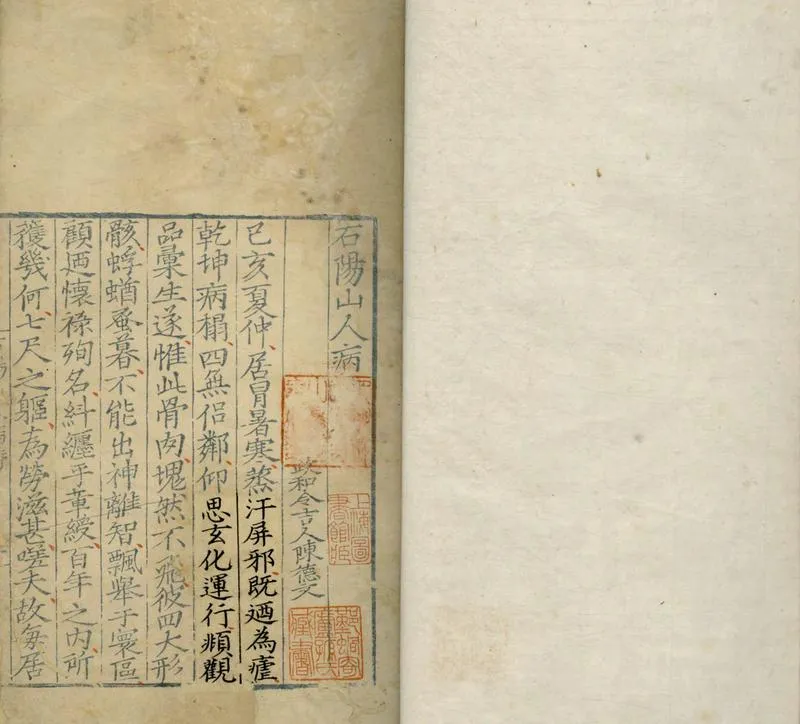 石陽山人病
政和令吉人陳德文
己亥夏仲居冒暑寒蒸汗屏邪既迺為瘧
乾坤病榻四無侶鄰仰思玄化運行頫觀
品彙生遂惟此骨肉塊然不飛彼四大形
骸蜉蝤蚤暮不能出神離智飄舉于寰區
顧迺懷祿殉名糾纏乎章綬百年之内所
獲幾何七尺之軀為勞滋甚嗟夫故每居
上海圖
書館藏